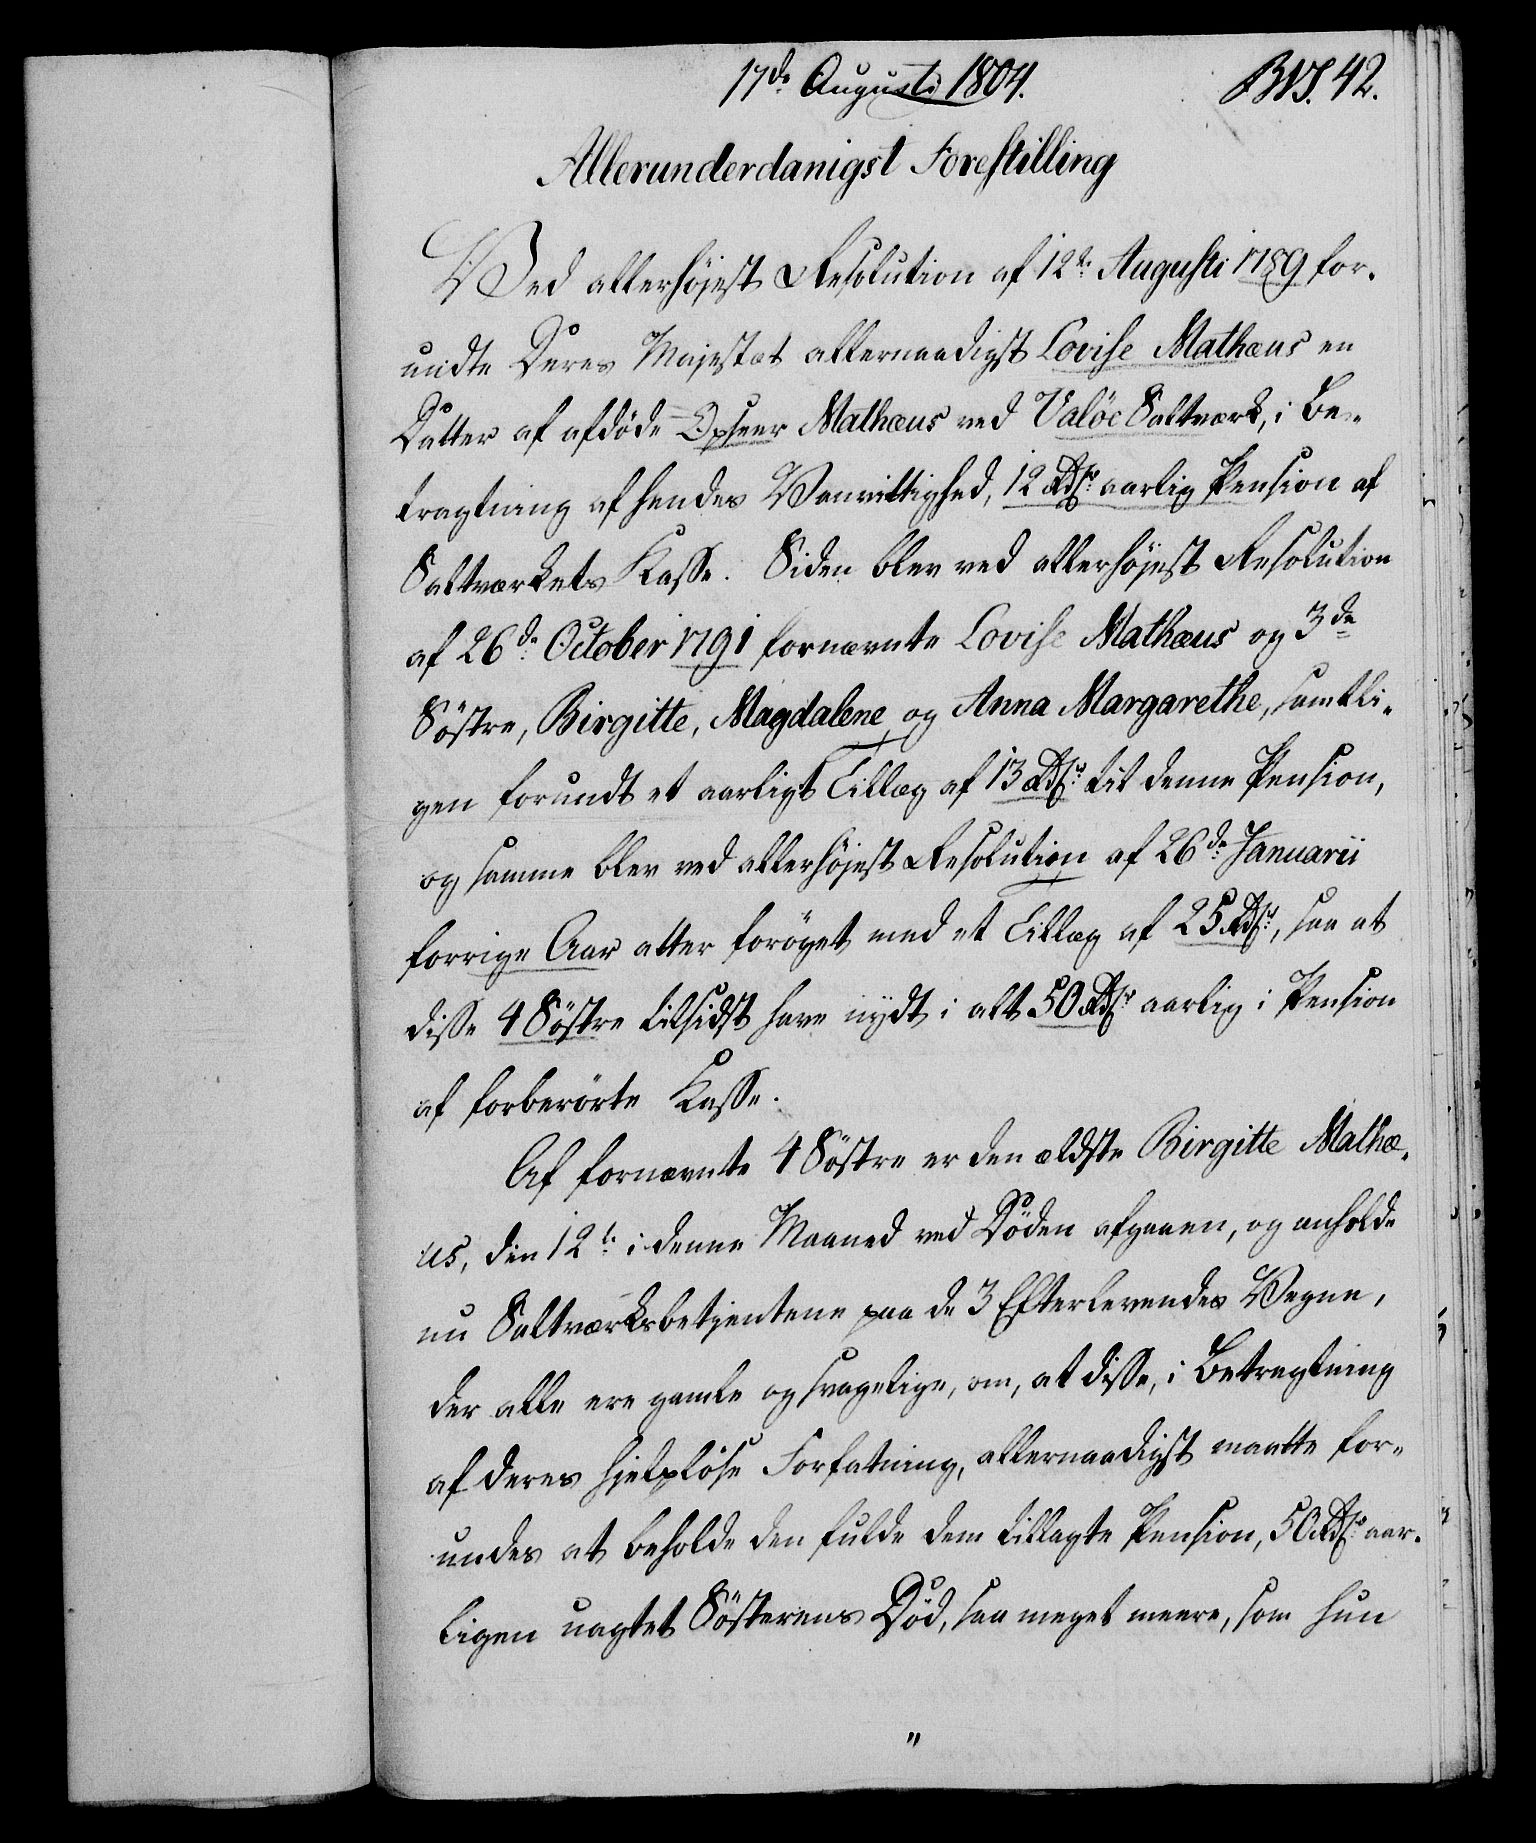 17de Augusti 1804.
BVS. 42.
Allerunderdanigst Forestilling
Ved allerhøjest Resolution af 12te Augusti 1789 for-
undte Deres Majestæt allernaadigst Lovise Mathæus en
Datter af afdøde Opseer Mathæus ved Valöe Saltværk, i Be-
tragtning af hendes Vanvittighed, 12 Rdlr aarlig Pension af
Saltværkets Kasse. Siden blev ved allerhøjest Resolution
af 26de October 1791 fornævnte Lovise Mathæus og 3de
Söstre, Birgitte, Magdalene og Anna Margarethe, samtli-
gen forundt et aarligt Tillæg af 13 Rdlr til denne Pension,
og samme blev ved allerhøjest Resolution af 26de Januarii
forrige Aar atter forøget med et Tillæg af 25 Rdlr, saa at
disse 4 Söstre tilsidst have nydt i alt 50 Rdlr aarlig i Pension
af forberörte Kasse.
Af fornævnte 4 Söstre er den ældste Birgitte Mathæ-
us, den 12te i denne Maaned ved Döden afgaaen, og anholde
nu Saltværksbetjentene paa de 3 Efterlevendes Vegne,
der alle ere gamle og svagelige, om, at disse, i Betragtning
af deres hjelpløse Forfatning, allernaadigst maatte for-
undes at beholde den fulde dem tillagte Pension, 50 Rdlr aar-
ligen uagtet Søsterens Död, saa meget meere, som hun
"